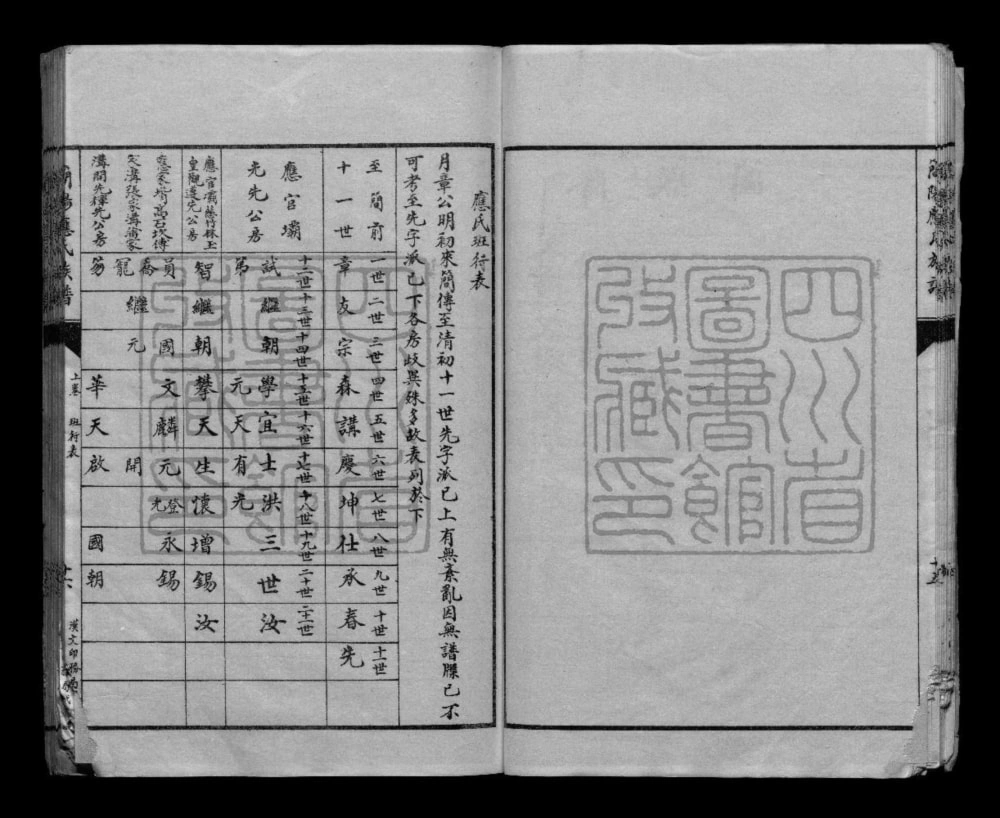 四川省
圖書館
收藏印
應氏班行表
月章公明初來簡傳至清初十一世先字派已上有無紊亂因無譜牒已不
可考至先字派已下各房歧異殊多故表列於下
至簡前十一世
一世 二世 三世 四世 五世 六世 七世 八世 九世 十世 十一世
章 友 宗 森 講 慶 坤 仕 承 春 先
應官壩
先先公房
十二世 十三世 十四世 十五世 十六世 十七世 十八世 十九世 二十世 二十一世
試 繼 朝 學 宜 士 洪 三 世 汝
第 元 天 有 光
應官壩蔭竹林玉
皇觀進先公房
智 繼 朝 攀 天 生 懷 增 錫 汝
高石坎傅
溝張家溝蕭家
溝間先輝先公房
員 國 文 麟 元 登 永 錫
喬
寵 繼 元 開 光
華 天 啟 國 朝
上卷 班行表
十六
漢文印
十五